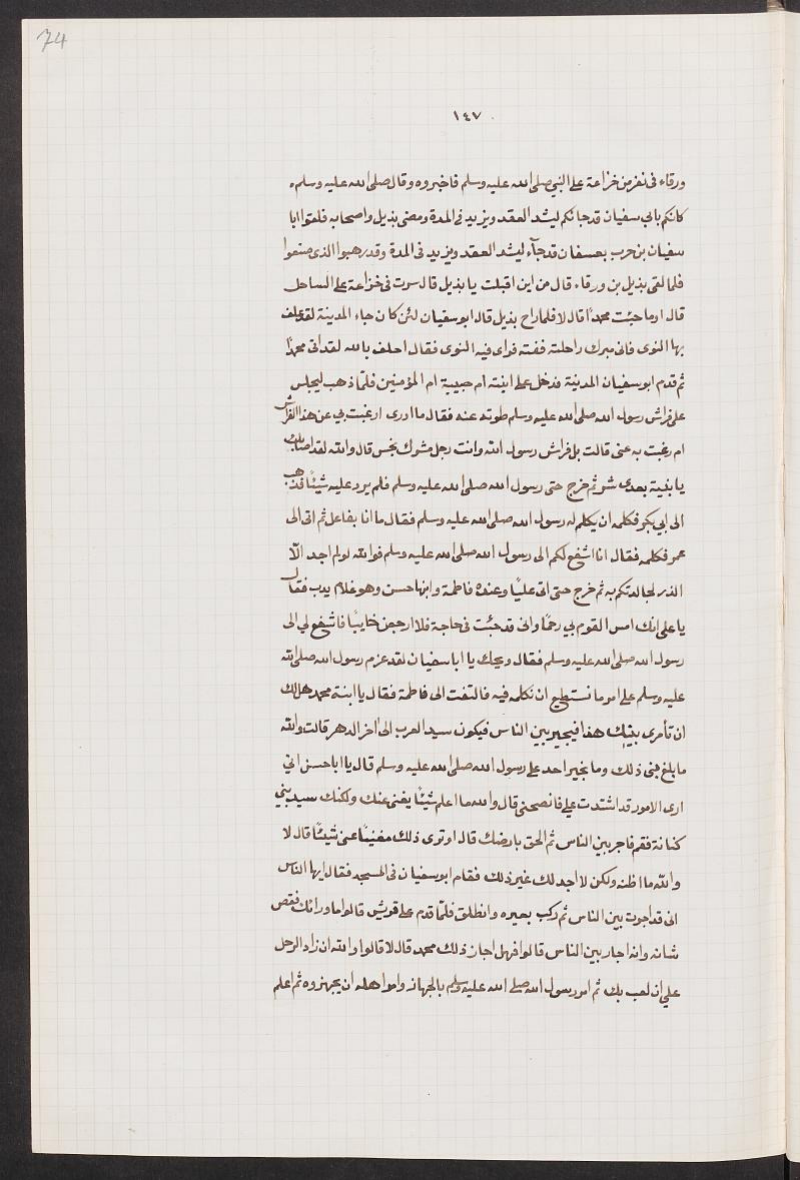 74
١٤٧
ورقاء فى نفر من خزاعة على النبي صلى الله عليه وسلم فاخبروه وقال صلى الله عليه وسلم
كانكم بابي سفيان قد جائكم ليشد العقد ويزيد فى المدة ومضى بذيل واصحابه فلقوا ابا
سفيان بن حرب بعسفان قد جآء ليشد العقد ويزيد فى المدة وقد رهبوا الذى صنعوا
فلما لقى بذيل بن ورقاء قال من اين اقبلت يا بذيل قال سرت فى خزاعة على الساحل
قال اوما جئت محمدًا قال لا فلما راح بذيل قال ابو سفيان لئن كان جاء المدينة لقد علف
بها النوى فاتى مبرك راحلته ففته فراى فيه النوى فقال احلف بالله لقد اتى محمدًا
ثم قدم ابو سفيان المدينة فدخل على ابنته ام حبيبة ام المؤمنين فلمّا ذهب ليجلس
على فراش رسول الله صلى الله عليه وسلم طوته عنه فقال ما ادرى ارغبت بي عن هذا الفراش
ام رغبت به عنى قالت بل فراش رسول الله وانت رجل مشرك نجس قال والله لقد اصابك
يا بنية بعدى شر ثم خرج حتى رسول الله صلى الله عليه وسلم فلم يرد عليه شيئًا فذهب
الى ابي بكر فكلمه ان يكلم له رسول الله صلى الله عليه وسلم فقال ما انا بفاعل ثم اتى الى
عمر فكلمه فقال انا اشفع لكم الى رسول الله صلى الله عليه وسلم فوالله لو لم اجد الّا
الذر لجالدتكم به ثم خرج حتى اتى عليًا وعنده فاطمة وابنها حسن وهو غلام يدب فقال
يا على انك امس القوم بي رحمًا وانى قد جئت فى حاجة فلا ارجعن خايبًا فاشفع لي الى
رسول الله صلى الله عليه وسلم فقال ويحك يا ابا سفيان لقد عزم رسول الله صلى الله
عليه وسلم على امر ما نستطيع ان نكلمه فيه فالتفت الى فاطمة فقال يا ابنة محمد هل لك
ان تأمرى بنيك هذا فيجير بين الناس فيكون سيد العرب الى اخر الدهر قالت والله
ما بلغ بنى ذلك وما يجير احد على رسول الله صلى الله عليه وسلم قال يا ابا حسن انى
ارى الامور قد اشتدت علي فانصحنى قال والله ما اعلم شيئًا يغنى عنك ولكنك سيد بني
كنانة فقم فاجر بين الناس ثم الحق بارضك قال اوترى ذلك مغنيًا عنى شيئًا قال لا
والله ما اظنه ولكن لا اجد لك غير ذلك فقام ابو سفيان فى المسجد فقال ايها الناس
انى قد اجرت بين الناس ثم ركب بعيره وانطلق فلمّا قدم على قريش قالوا ما ورائك فقص
شانه وانه اجار بين الناس قالوا فهل اجاز ذلك محمد قال لا قالوا والله ان زاد الرجل
علي ان لعب بك ثم امر رسول الله صلى الله عليه وسلم بالجهاز وامر اهله ان يجهزوه ثم اعلم